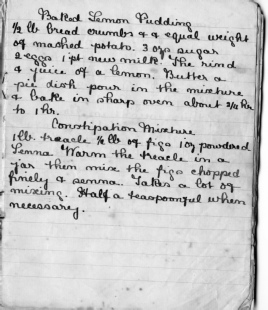 Baked Lemon Pudding
½ lb bread crumbs & a equal weight
of mashed potato. 3 ozs sugar
2 eggs. 1 pt new milk. The rind
& juice of a lemon. Butter a
pie dish pour in the mixture
& bake in sharp oven about 3/4 hr
to 1 hr.
Constipation Mixture
1 lb. treacle ½ lb of figs 1 oz powdered
Senna Warm the treacle in a
jar then mix the figs chopped
finely & senna. Takes a lot of
mixing. Half a teaspoonful when
necessary.